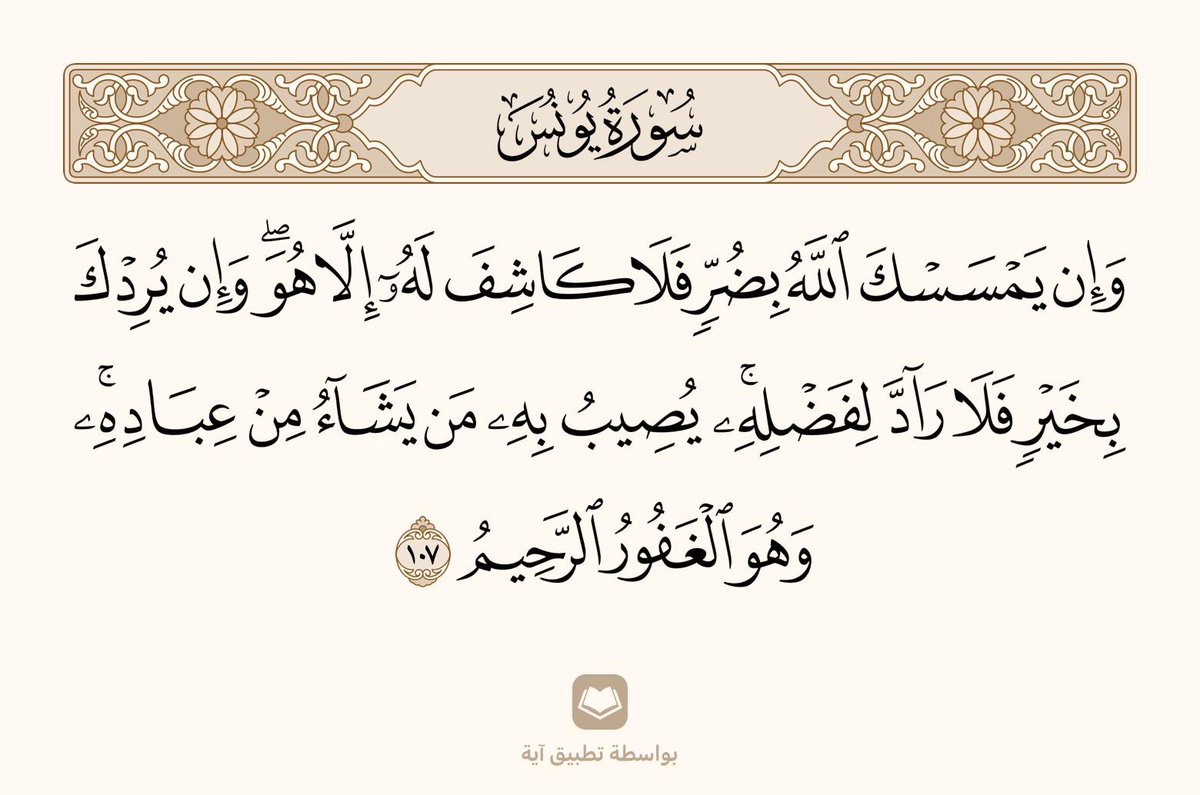 سُورَةُ يُونُسَ
وَإِن يَمۡسَسۡكَ ٱللَّهُ بِضُرّٖ فَلَا كَاشِفَ لَهُۥٓ إِلَّا هُوَۖ وَإِن يُرِدۡكَ
بِخَيۡرٖ فَلَا رَآدَّ لِفَضۡلِهِۦۚ يُصِيبُ بِهِۦ مَن يَشَآءُ مِنۡ عِبَادِهِۦۚ
وَهُوَ ٱلۡغَفُورُ ٱلرَّحِيمُ ١٠٧
بواسطة تطبيق آية